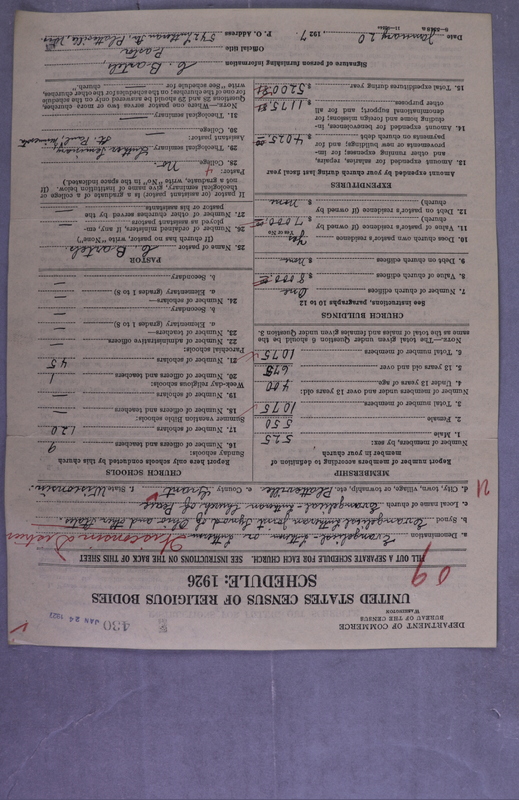 430
JAN 24 1927
DEPARTMENT OF COMMERCE
BUREAU OF THE CENSUS
WASHINGTON
UNITED STATES CENSUS OF RELIGIOUS BODIES
SCHEDULE: 1926
09
FILL OUT A SEPARATE SCHEDULE FOR EACH CHURCH. SEE INSTRUCTIONS ON THE BACK OF THIS SHEET
a. Denomination Evangelical-Lutheran
b. Synod Evangelical Lutheran Joint Synod of Ohio and other States
Wisconsin District
c. Local name of church Evangelical Lutheran Church of Peace
d. City, town, village, or township, etc. Platteville e. County Grant f. State Wisconsin
MEMBERSHIP
Report number of members according to definition of member in your church
Number of members, by sex:
1. Male 525
2. Female 550
3. Total number of members 1075
Number of members under and over 13 years old:
4. Under 13 years of age 400
5. 13 years old and over 675
6. Total number of members 1075
NOTE.—The total given under Question 6 should be the same as the total of males and females given under question 3.
CHURCH BUILDINGS
See instructions, paragraphs 10 to 12
7. Number of church edifices One
8. Value of church edifices $ 8000.00
9. Debt on church edifices $ None
10. Does church own pastor's residence Yes
Yes or No
11. Value of pastor's residence (if owned by church) $ 7000.00
12. Debt on pastor's residence (if owned by church) $ None
EXPENDITURES
Amount expended by your church during last fiscal year
13. Amount expended for salaries, repairs, and other running expenses; for improvements or new building; and for payments on church debt $ 4025.00
14. Amount expended for benevolences, including home and foreign missions; for denominational support; and for all other purposes $ 1175.
15. Total expenditures during year $ 5200.
CHURCH SCHOOLS
Report here only schools conducted by this church
Sunday schools:
16. Number of officers and teachers 9
17. Number of scholars 120
Summer vacation Bible schools:
18. Number of officers and teachers —
19. Number of scholars —
Week-day religious schools:
20. Number of officers and teachers 1
21. Number of scholars 45
Parochial schools:
22. Number of administrative officers —
23. Number of teachers—
a. Elementary (grades 1 to 8) —
b. Secondary —
24. Number of scholars—
a. Elementary (grades 1 to 8) —
b. Secondary —
PASTOR
25. Name of pastor C. Bartels
(If church has no pastor, write "None")
26. Number of ordained ministers, if any, employed as assistant pastors —
27. Number of other churches served by the pastor or his assistants —
If pastor (or assistant pastor) is a graduate of a college or theological seminary, give name of institution below. (If not a graduate, write "No" in the space indicated.)
Pastor: 4
28. College No.
29. Theological seminary Luther Seminary, St. Paul, Minnesota
Assistant pastor:
30. College —
31. Theological seminary —
NOTE.—Where one pastor serves two or more churches, Questions 25 and 26 should be answered only on the schedule for one of the churches; on the schedules for the other churches, write "See schedule for church."
Signature of person furnishing information C. Bartels,
Official title Pastor
Date January 20 1927 P. O. Address Platteville, Wis.